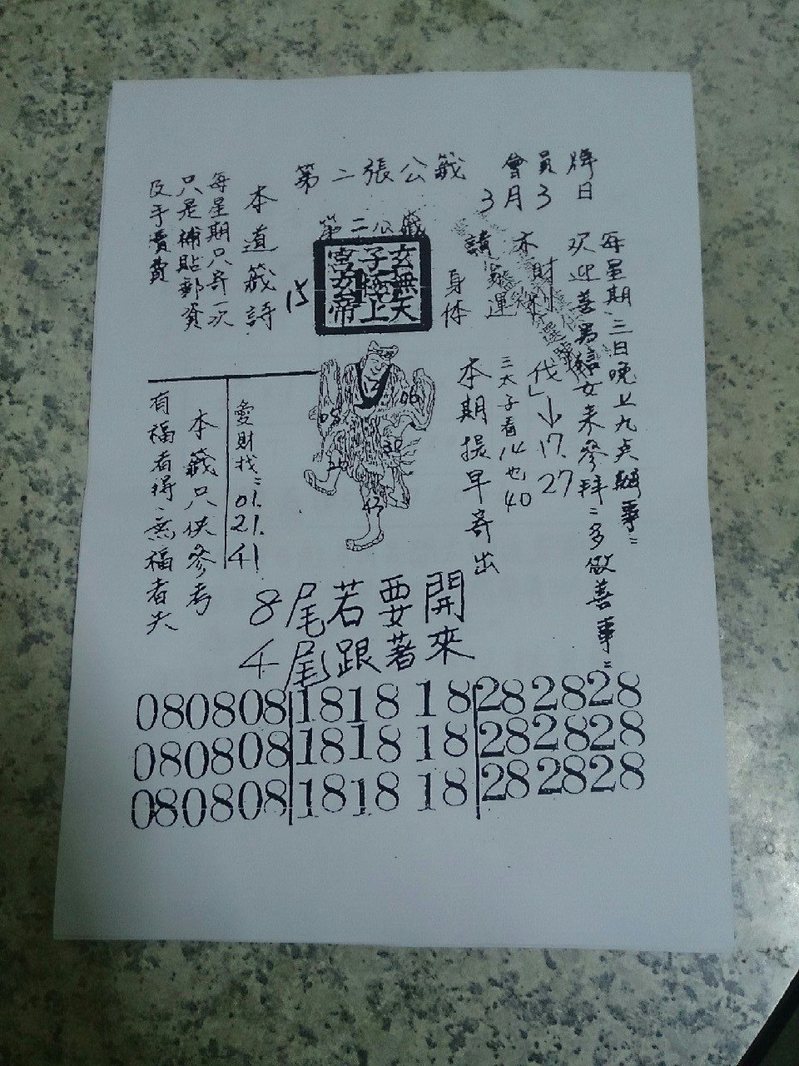 第二張公籤
會員牌
3月3日
每星期三日晚上九点辦事:
欢迎善男信女來參拜:多做善事:
財利
伐」↓17.27
三太子看14也40
家運
身体
本期提早寄出
第二公籤
玄天上帝
無極
子
宮
15
本道籤詩
每星期只寄一次
只是補貼郵資
及手費費
05
06
30
43
愛財找:01.21.41
本籤只供參考
有福者得:無福者失
8尾若要開
4尾跟著來
080808 181818 282828
080808 181818 282828
080808 181818 282828